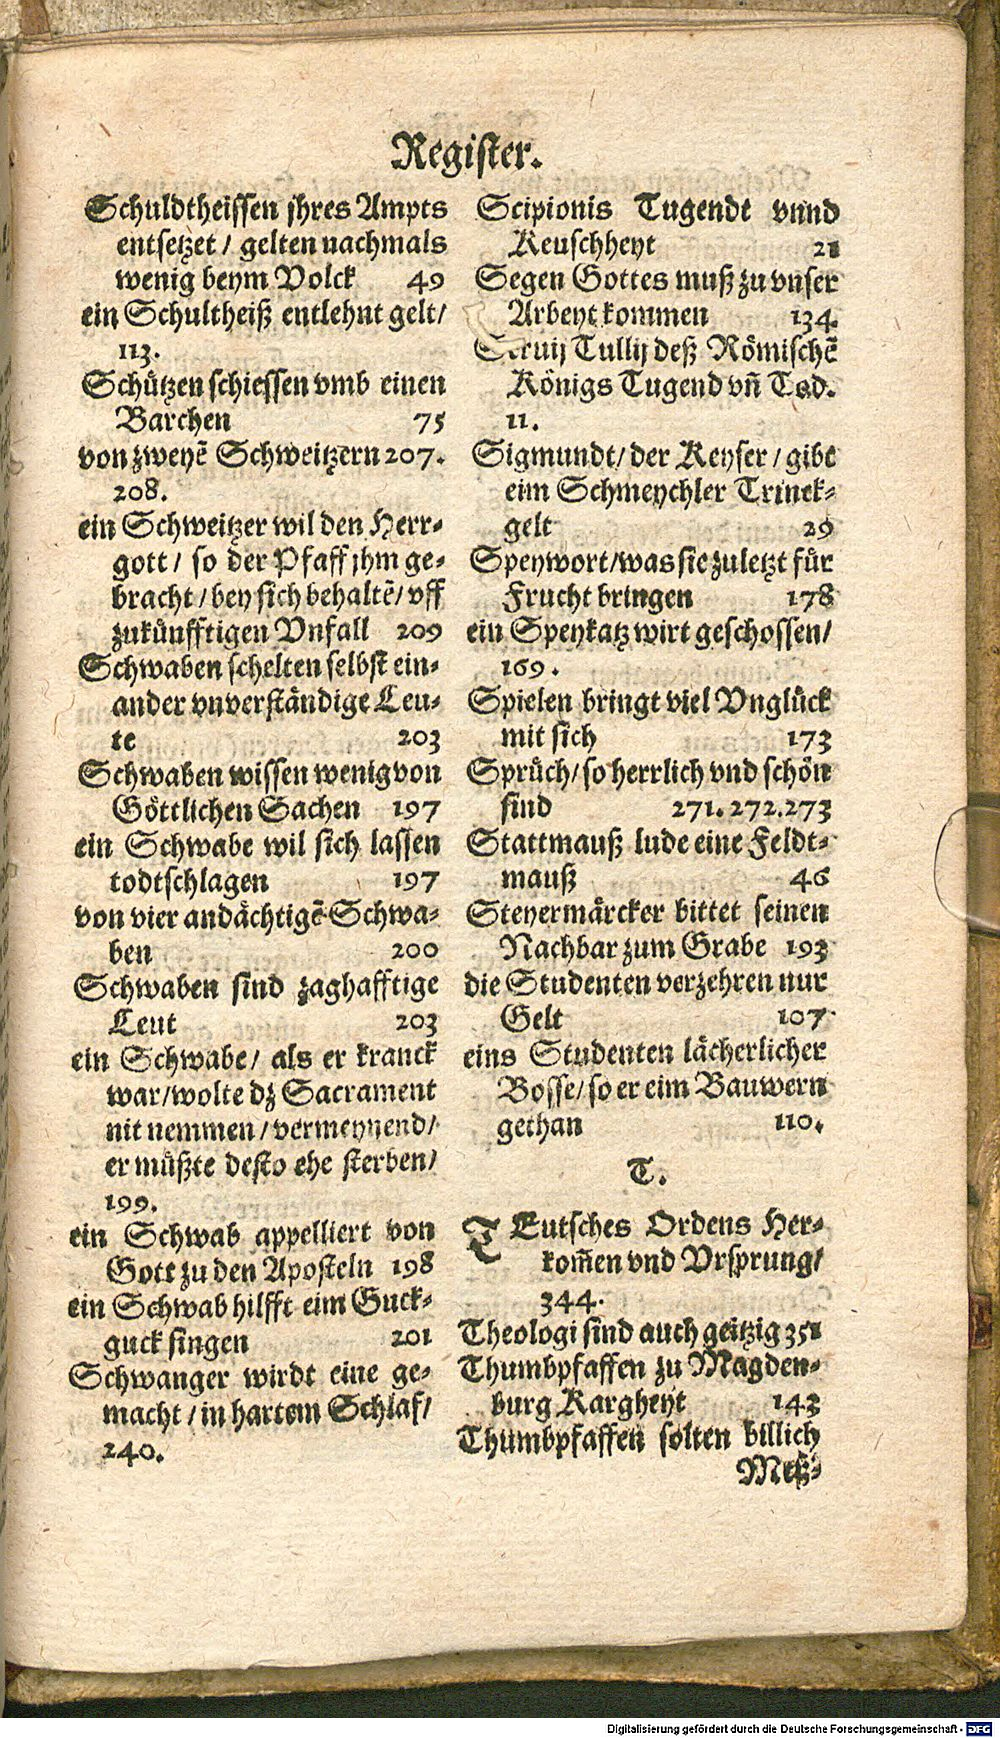 Register.
Schuldtheissen jhres Ampts
entsetzet / gelten nachmals
wenig beym Volck 49
ein Schultheiß entlehnt gelt/
113.
Schützen schiessen vmb einen
Barchen 75
von zweyẽ Schweitzern 207.
208.
ein Schweitzer wil den Herr-
gott / so der Pfaff jhm ge-
bracht / bey sich behaltẽ / vff
zukünfftigen Vnfall 209
Schwaben schelten selbst ein-
ander vnverständige Leu-
te 203
Schwaben wissen wenig von
Göttlichen Sachen 197
ein Schwabe wil sich lassen
todtschlagen 197
von vier andächtigẽ Schwa-
ben 200
Schwaben sind zaghafftige
Leut 203
ein Schwabe / als er kranck
war / wolte dz Sacrament
nit nemmen / vermeynend /
er müßte desto ehe sterben /
199.
ein Schwab appelliert von
Gott zu den Aposteln 198
ein Schwab hilfft eim Guck-
guck singen 201
Schwanger wirdt eine ge-
macht / in hartem Schlaf /
240.
Scipionis Tugendt vnnd
Keuschheyt 21
Segen Gottes muß zu vnser
Arbeyt kommen 134.
Tullij deß Römischẽ
Königs Tugend vñ Tod.
11.
Sigmundt / der Keyser / gibt
eim Schmeychler Trinck-
gelt 29
Speywort / was sie zuletzt für
Frucht bringen 178
ein Speykatz wirt geschossen /
169.
Spielen bringt viel Vnglück
mit sich 173
Sprüch / so herrlich vnd schön
sind 271. 272. 273
Stattmauß lude eine Feldt-
mauß 46
Steyermärcker bittet seinen
Nachbar zum Grabe 193
die Studenten verzehren nur
Gelt 107
eins Studenten lächerlicher
Bosse / so er eim Bauwern
gethan 110.
T.
TEutsches Ordens Her-
kom̃en vnd Vrsprung /
344.
Theologi sind auch geitzig 351
Thumbpfaffen zu Magden-
burg Kargheyt 143
Thumbpfaffen solten billich
Meß-
Digitalisierung gefördert durch die Deutsche Forschungsgemeinschaft - DFG